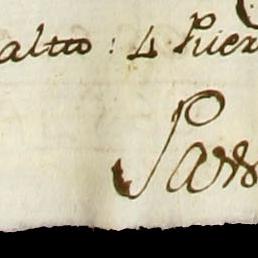 alto : 4 Pier
Pass